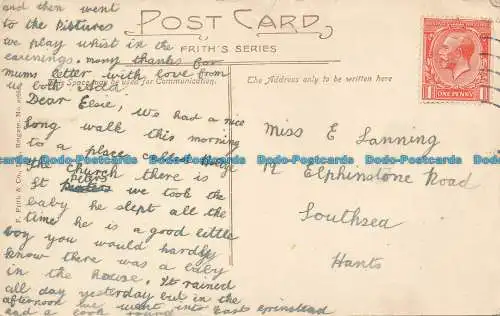 and then went
to the Pictures
we play whist in the
evenings. many thanks for
mums letter with love from
us both
POST CARD
FRITH'S SERIES
This Space may be used for Communication.
The Address only to be written here
ONE PENNY
Dear Elsie, We had a nice
long walk this morning
to a place called
The Church there is
St Peters we took the
baby he slept all the
time he is a good little
boy you would hardly
know there was a baby
in the house. It rained
all day yesterday but in the
afternoon we went into East Grinstead
and a look round
Miss E Lanning
Elphinstone Road
Southsea
Hants
F. Frith & Co., Ltd., Reigate.
Postcards